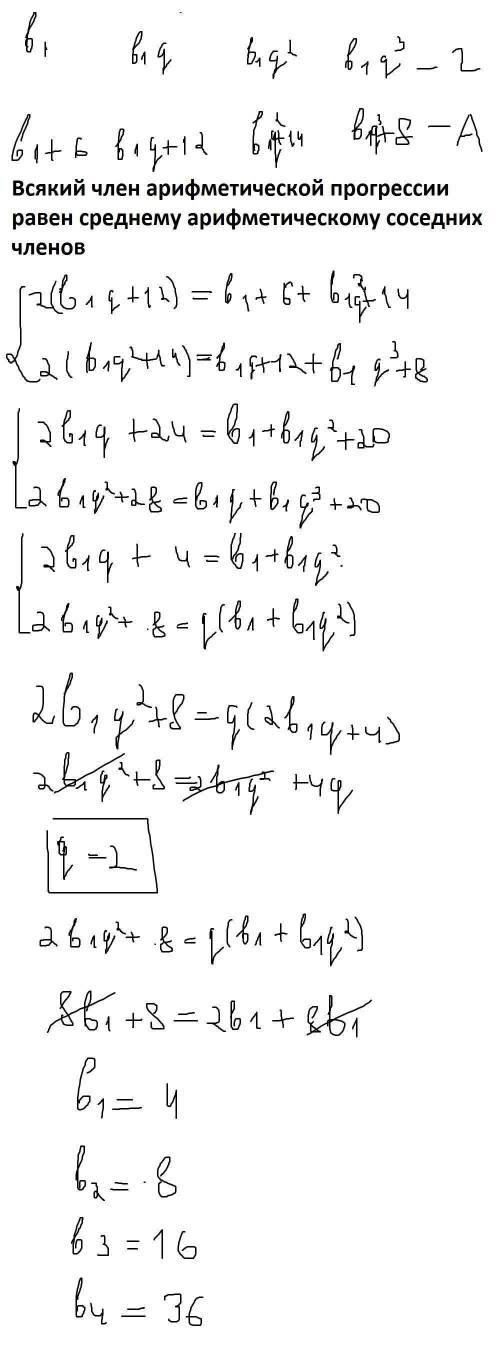 b₁ b₁q b₁q² b₁q³ – 2
b₁+6 b₁q+12 b₁q²+14 b₁q³+8 – A
Всякий член арифметической прогрессии
равен среднему арифметическому соседних
членов
2(b₁q+12) = b₁+6+b₁q²+14
2(b₁q²+14)=b₁q+12+b₁q³+8
2b₁q+24=b₁+b₁q²+20
2b₁q²+28=b₁q+b₁q³+20
2b₁q+4=b₁+b₁q²
2b₁q²+8=q(b₁+b₁q²)
2b₁q²+8=q(2b₁q+4)
2b₁q²+8=2b₁q²+4q
q=2
2b₁q²+8=q(b₁+b₁q²)
8b₁+8=2b₁+8b₁
b₁=4
b₂=8
b3=16
b4=36